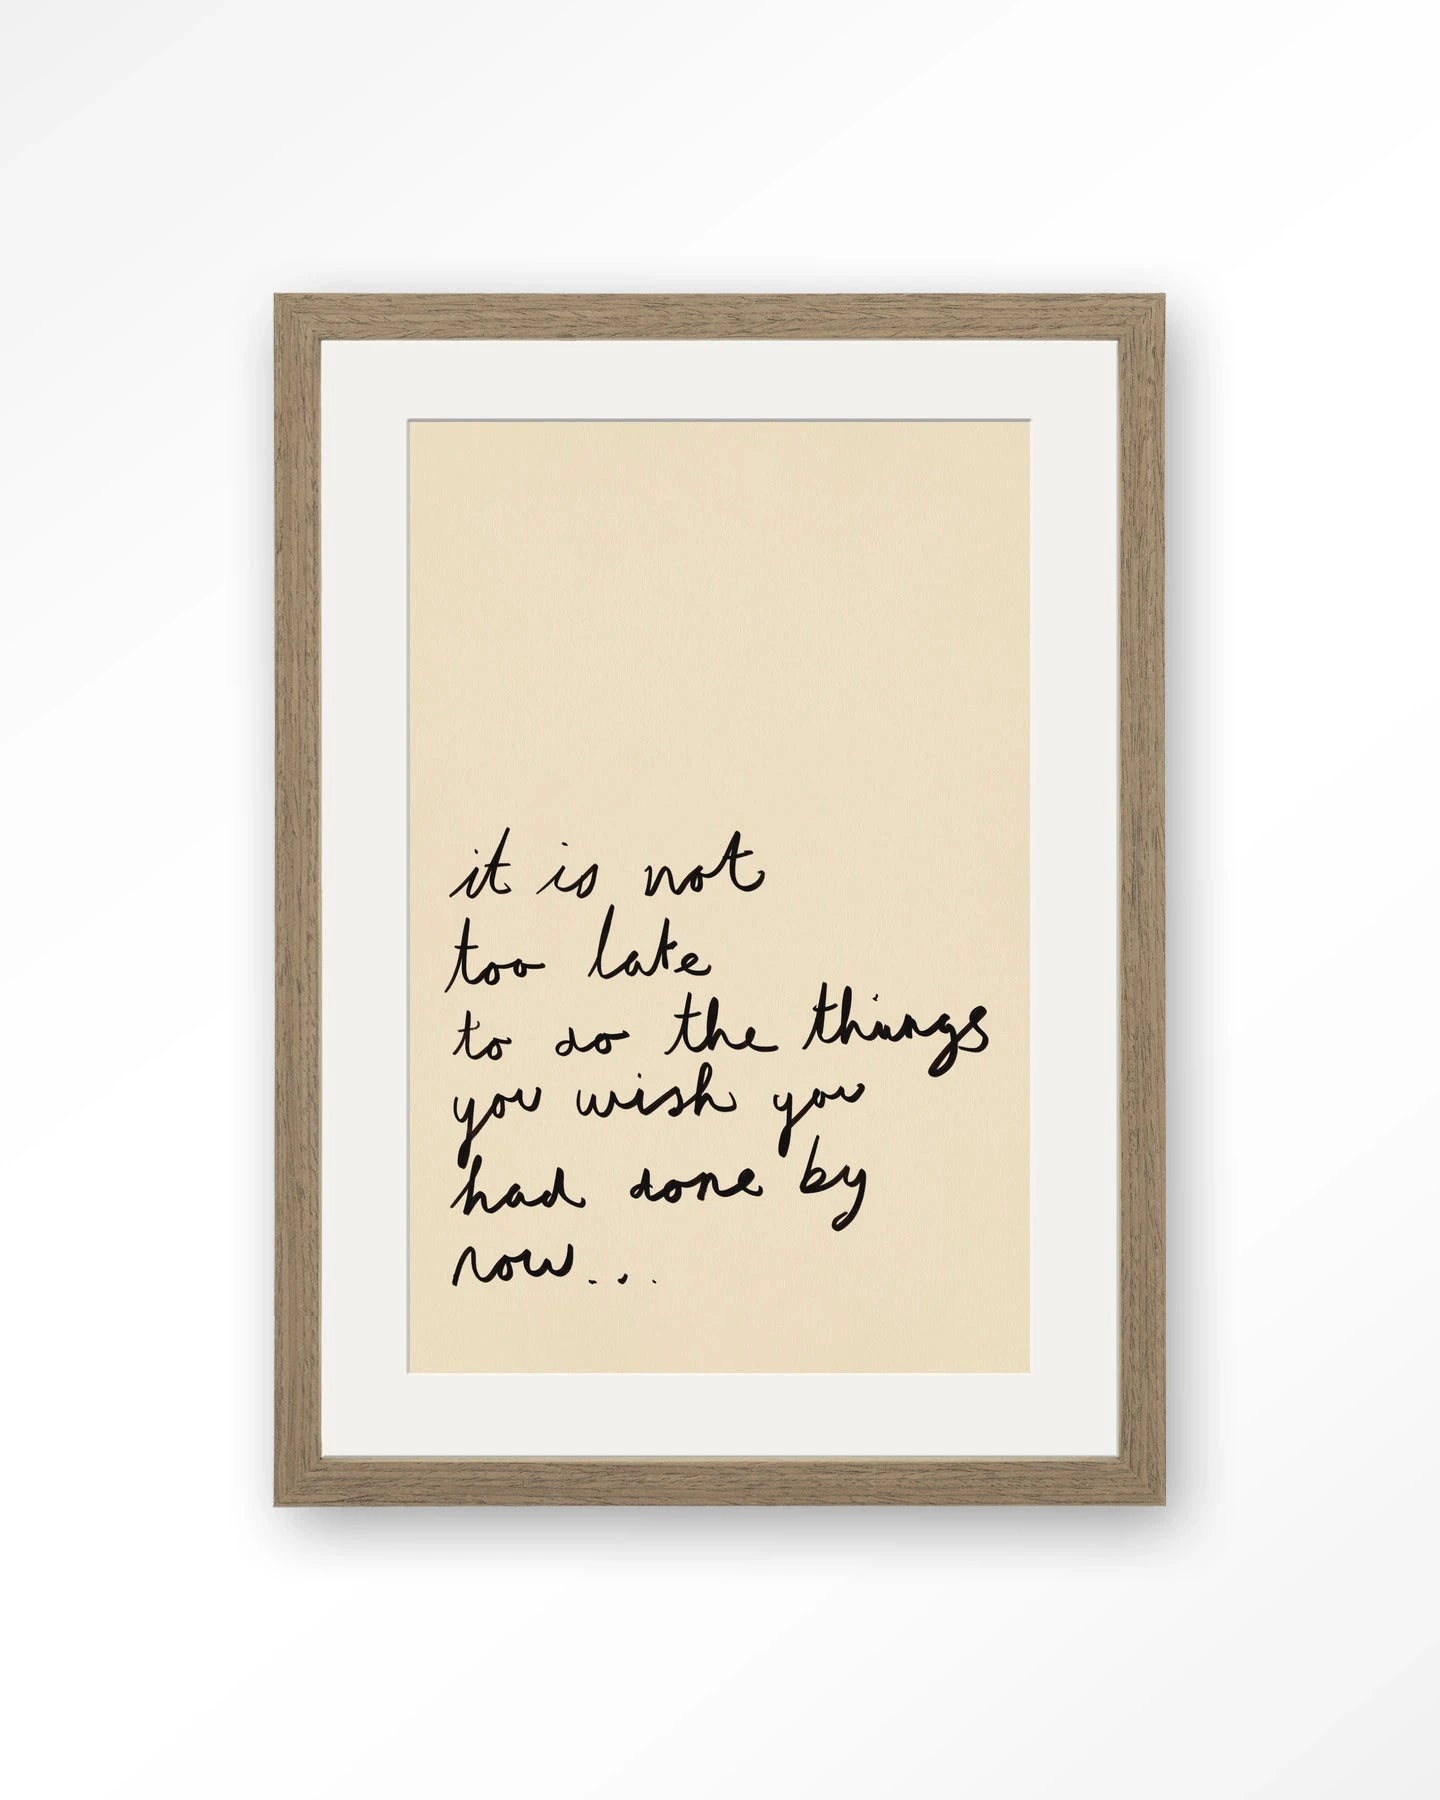 it is not
too late
to do the things
you wish you
had done by
now...